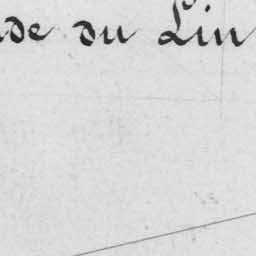 de du Lin